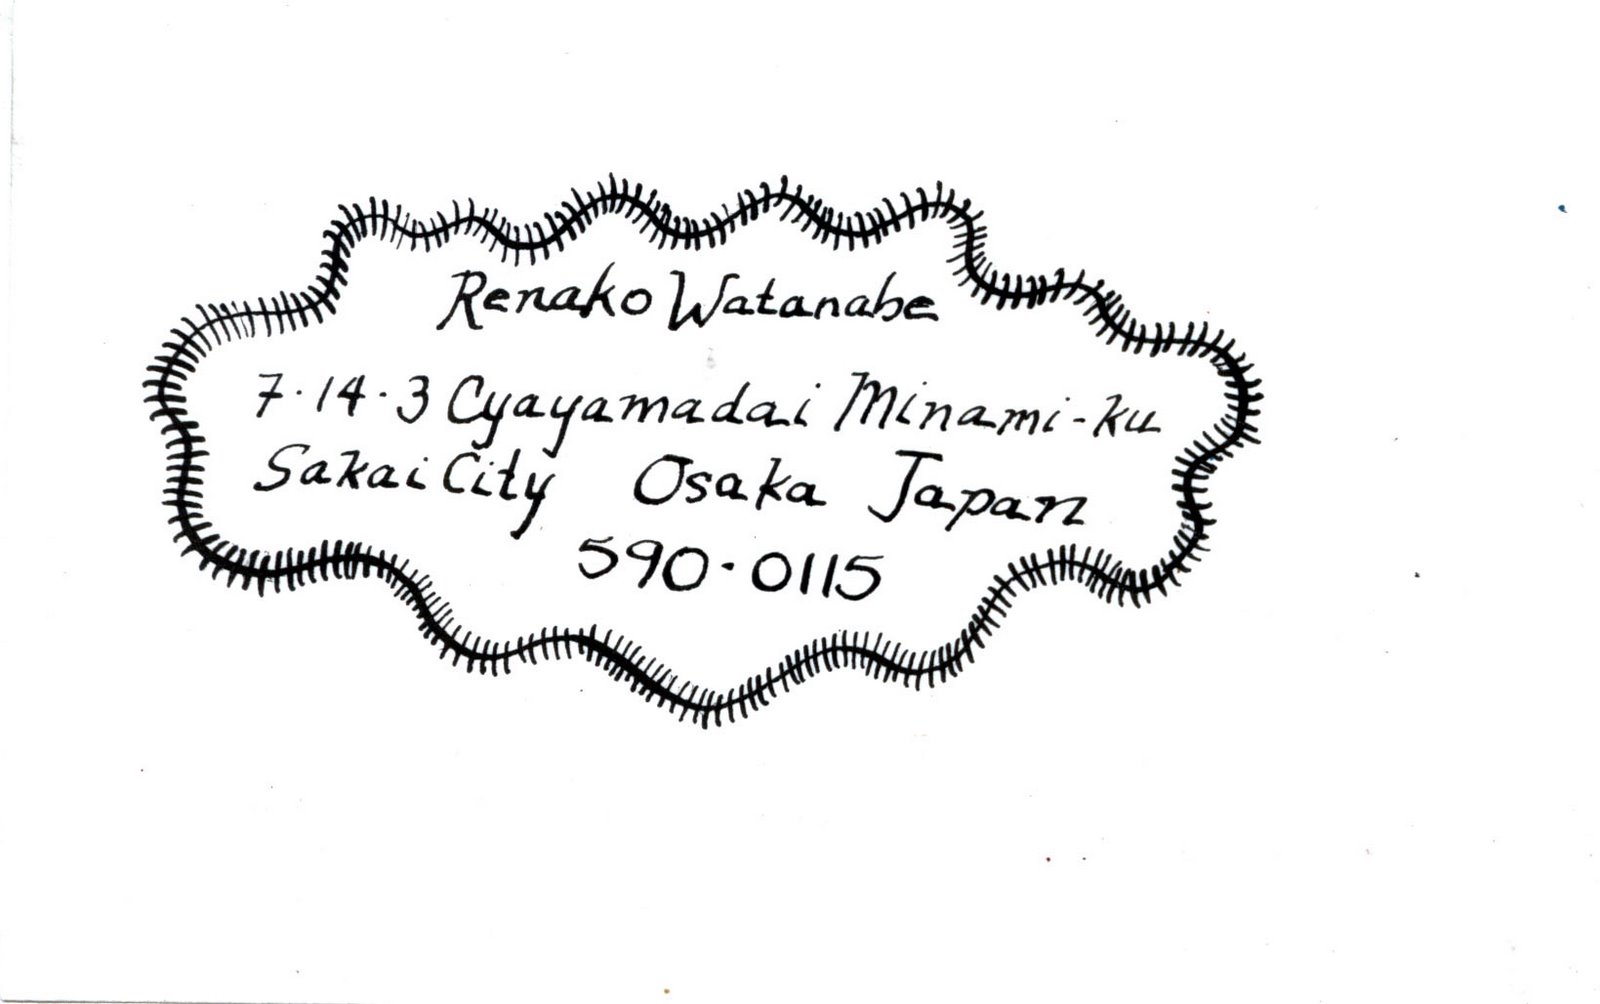 Renako Watanabe
7·14·3 Cyayamadai Minami-ku
Sakai City Osaka Japan
590·0115